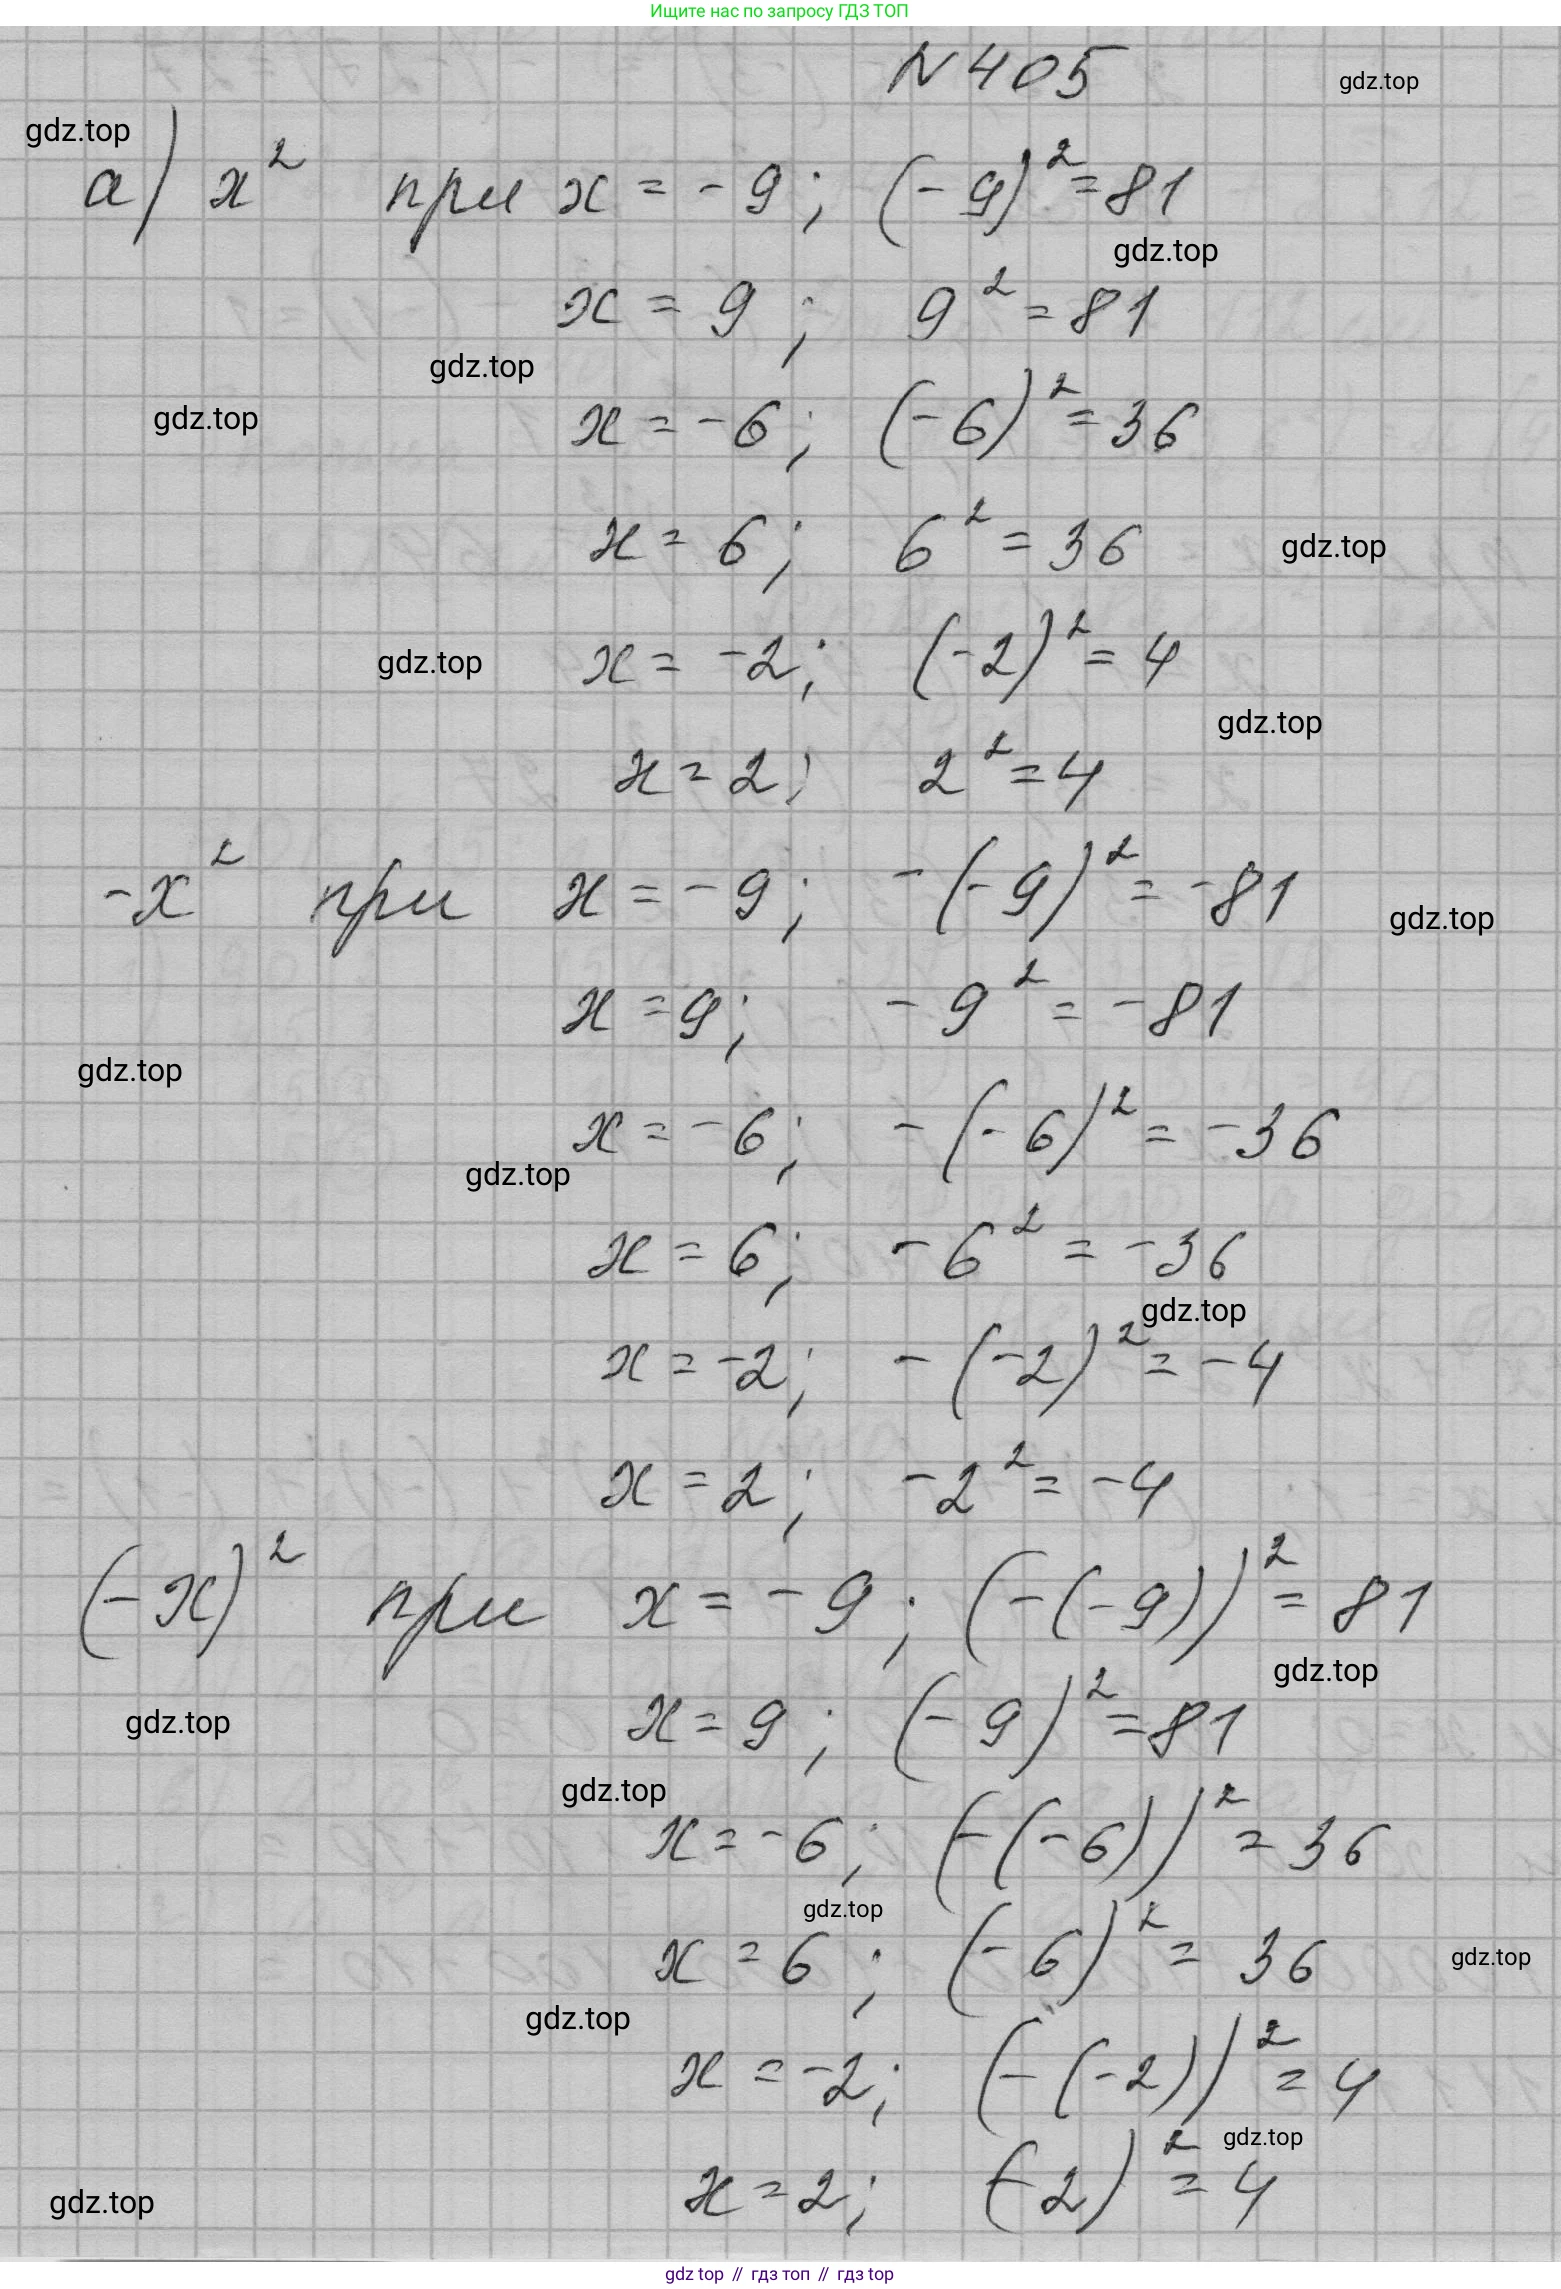 Ищите нас по запросу ГДЗ ТОП
N 405
gdz.top
gdz.top
а) x² при x = -9; (-9)² = 81
gdz.top
x = 9; 9² = 81
gdz.top
gdz.top
x = -6; (-6)² = 36
x = 6; 6² = 36
gdz.top
x = -2; (-2)² = 4
gdz.top
gdz.top
x = 2; 2² = 4
-x² при x = -9; -(-9)² = -81
gdz.top
x = 9; -9² = -81
gdz.top
x = -6; -(-6)² = -36
gdz.top
x = 6; -6² = -36
gdz.top
x = -2; -(-2)² = -4
x = 2; -2² = -4
(-x)² при x = -9; (-(-9))² = 81
gdz.top
gdz.top
x = 9; (-9)² = 81
gdz.top
x = -6; (-(-6))² = 36
gdz.top
x = 6; (-6)² = 36
gdz.top
gdz.top
x = -2; (-(-2))² = 4
gdz.top
x = 2; (-2)² = 4
gdz.top
gdz top // гдз топ // гдз top